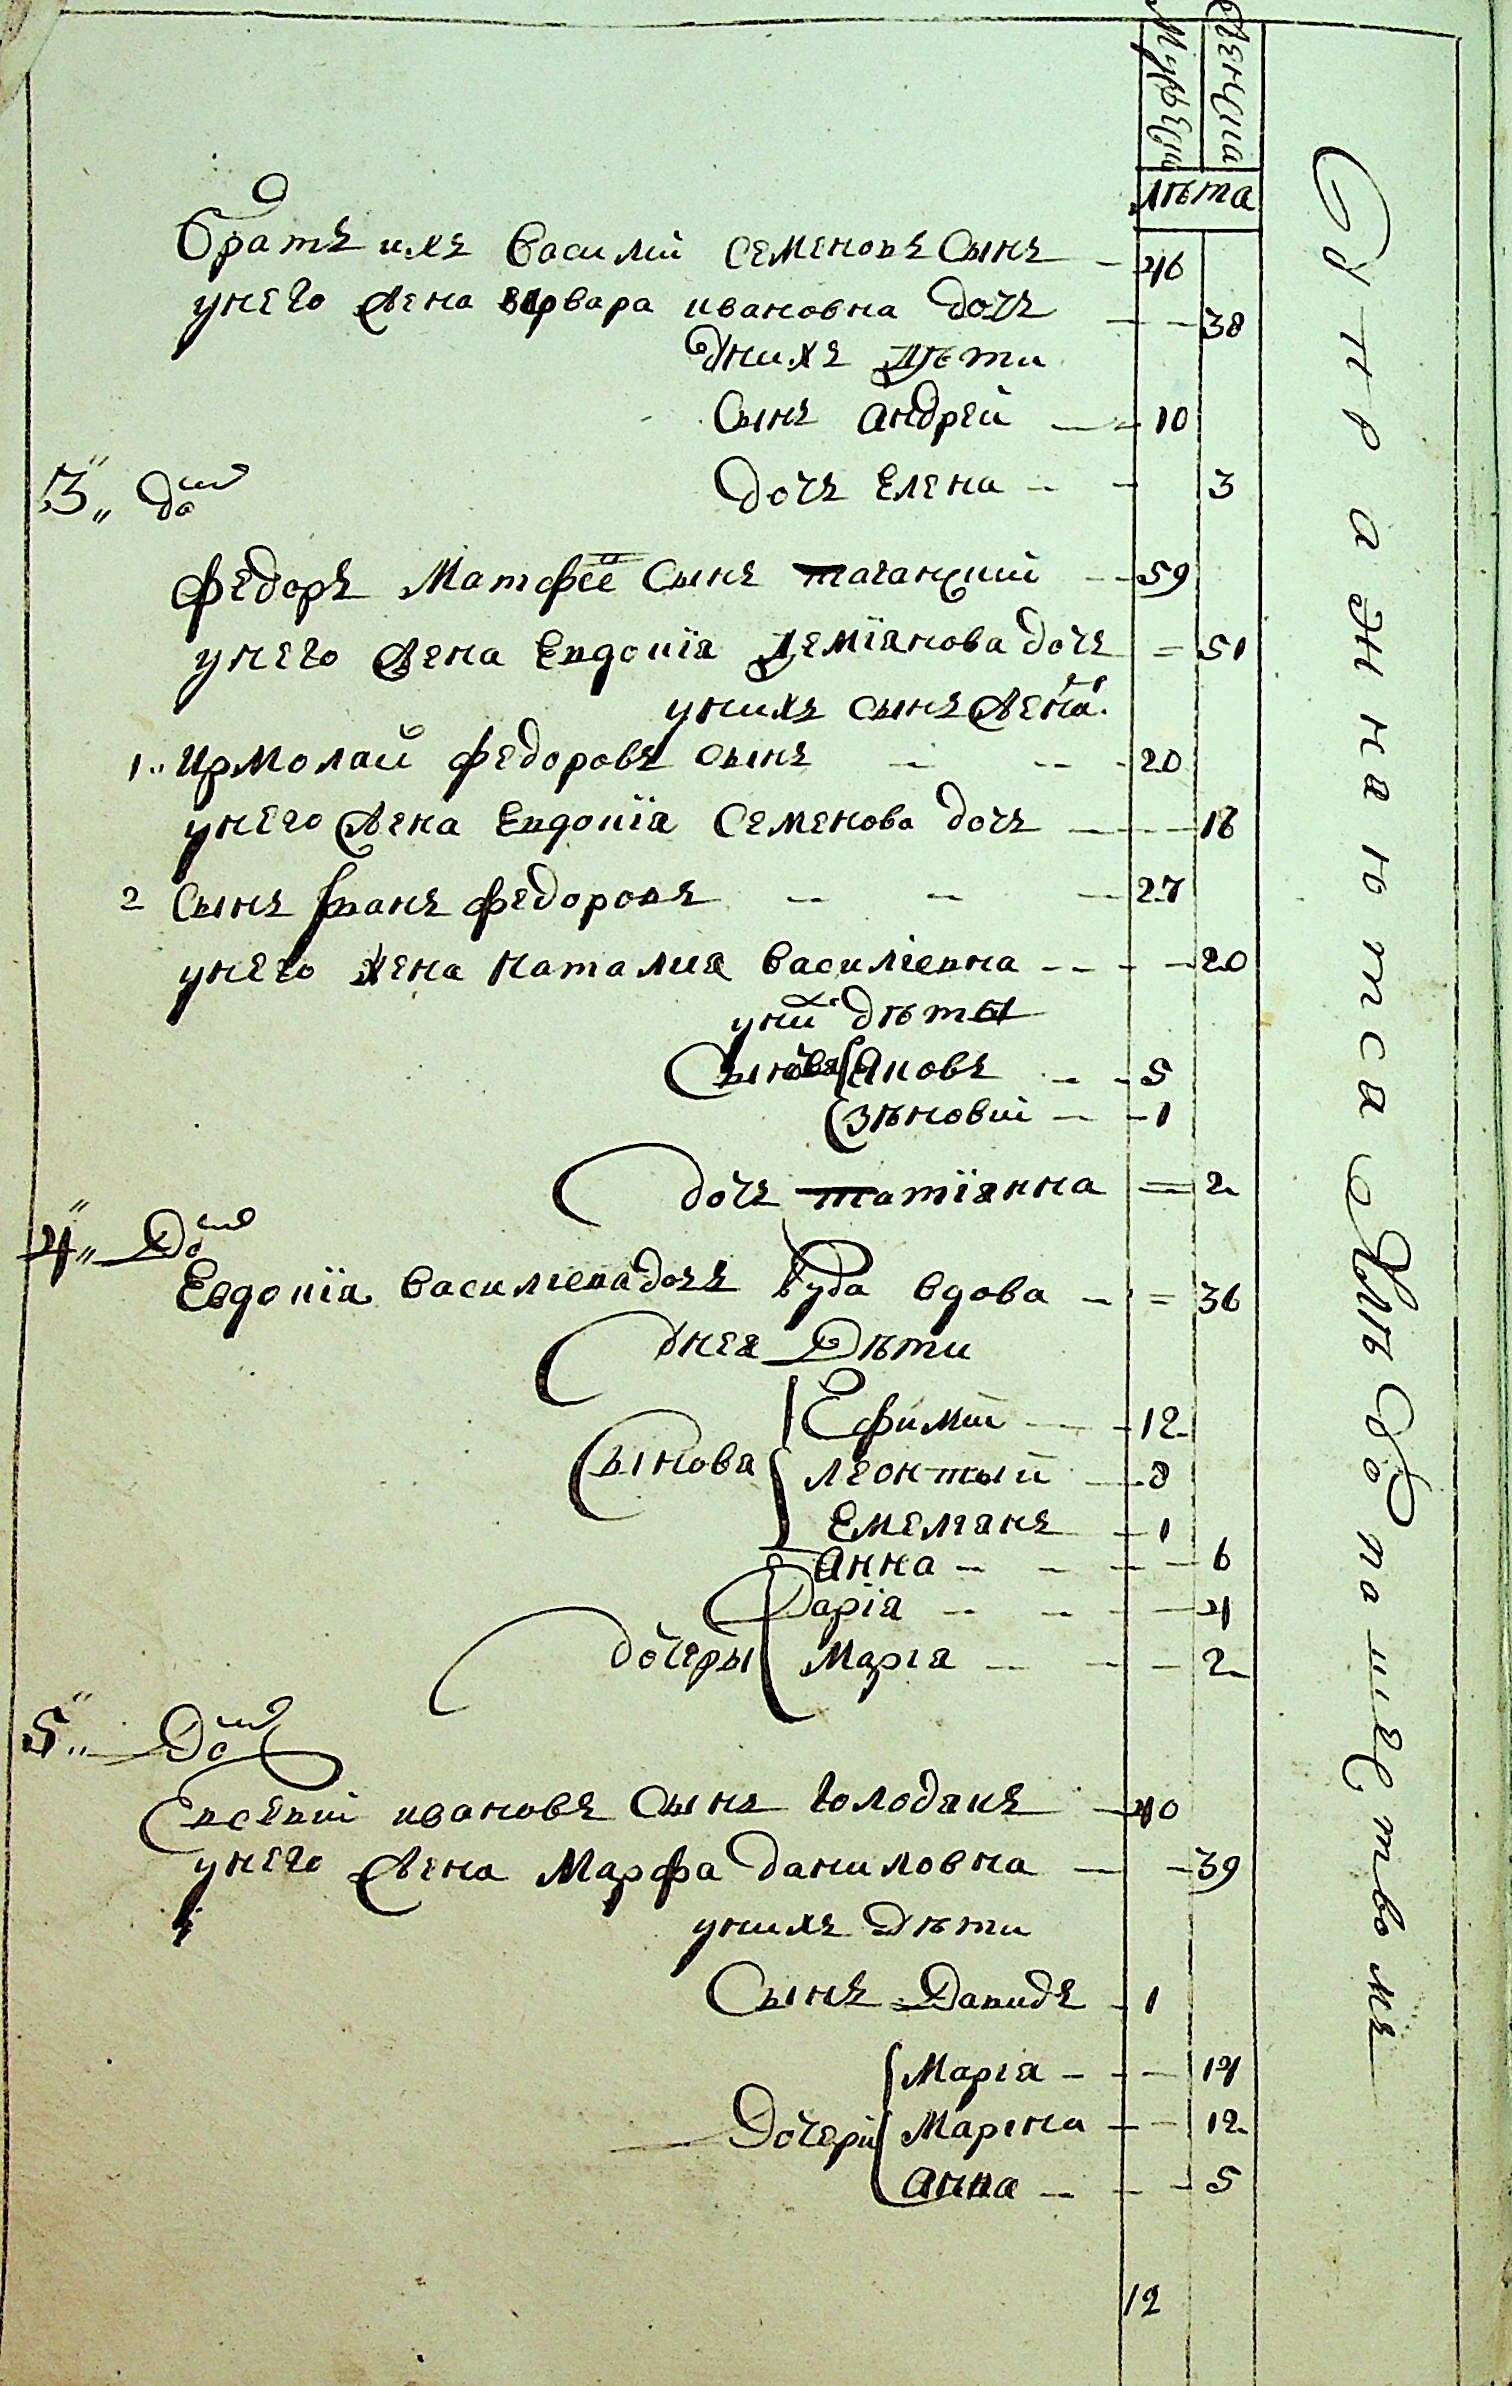 Мужеска
Женска
лѣта
Братъ ихъ Василій Семеновъ Сынъ – 46
унего жена варвара ивановна дочь – – 38
униХъ дѣти
Сынъ андрей – – 10
дочь Елена – – 3
3„ дō
Федоръ Матфее Сынъ таганский – – 59
унего жена Евдокїа Демїанова дочь = 51
унихъ сынъ жена
1„ Ирмолай Федоровъ сынъ – – – 20
унего жена Евдокїа Семенова дочь – – – 18
2 Сынъ Іванъ Федоровъ – – – 27
унего жена Наталия Василіевна – – – – 20
униⷯ дѣты
Сынова Яковъ – – 5
Зѣновий – – 1
дочь татїанна = 2
4„ Дō
Евдокїа Василіева дочь вдова – = 36
унея Дѣти
Ефимій – – 12
Сынова Леонтый – 8
Емеліанъ – 1
Анна – – – – 6
Дарїа – – – – 4
дочеры Маріа – – – 2
5„ Дō
Евсевій ивановъ Сынъ Голоданъ – 40
унего жена Марфа даниловна – – 39
унихъ Дѣти
Сынъ Давидъ – 1
Маріа – – – 14
Дочерй Марина – – 12
Анна – – – 5
12